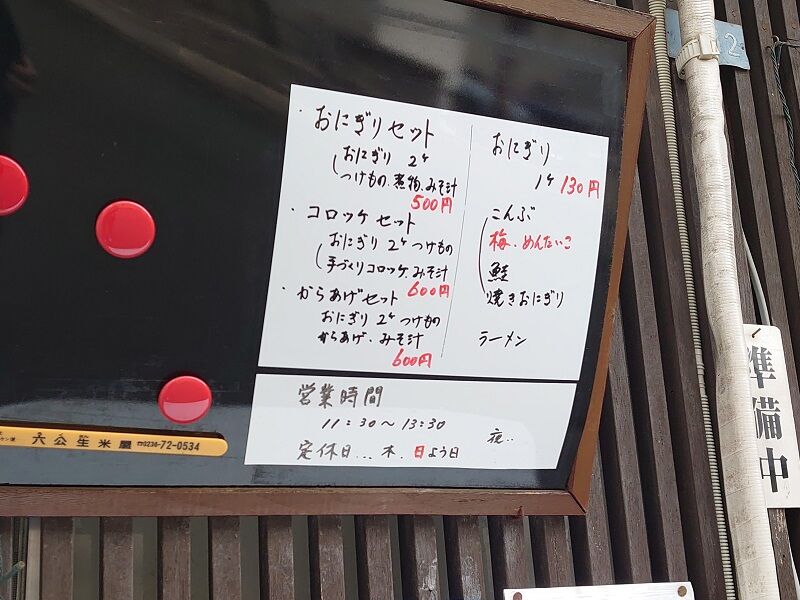 ・おにぎりセット
おにぎり 2ケ
つけもの.煮物.みそ汁
500円
・コロッケセット
おにぎり 2ケ つけもの
手づくりコロッケ.みそ汁
600円
・からあげセット
おにぎり 2ケ つけもの
からあげ.みそ汁
600円
おにぎり
1ケ 130円
こんぶ
梅.めんたいこ
鮭
焼きおにぎり
ラーメン
営業時間
11:30～13:30
夜..
定休日... 木.日よう日
六公生米屋 ☎0236-72-0534
準備中
2